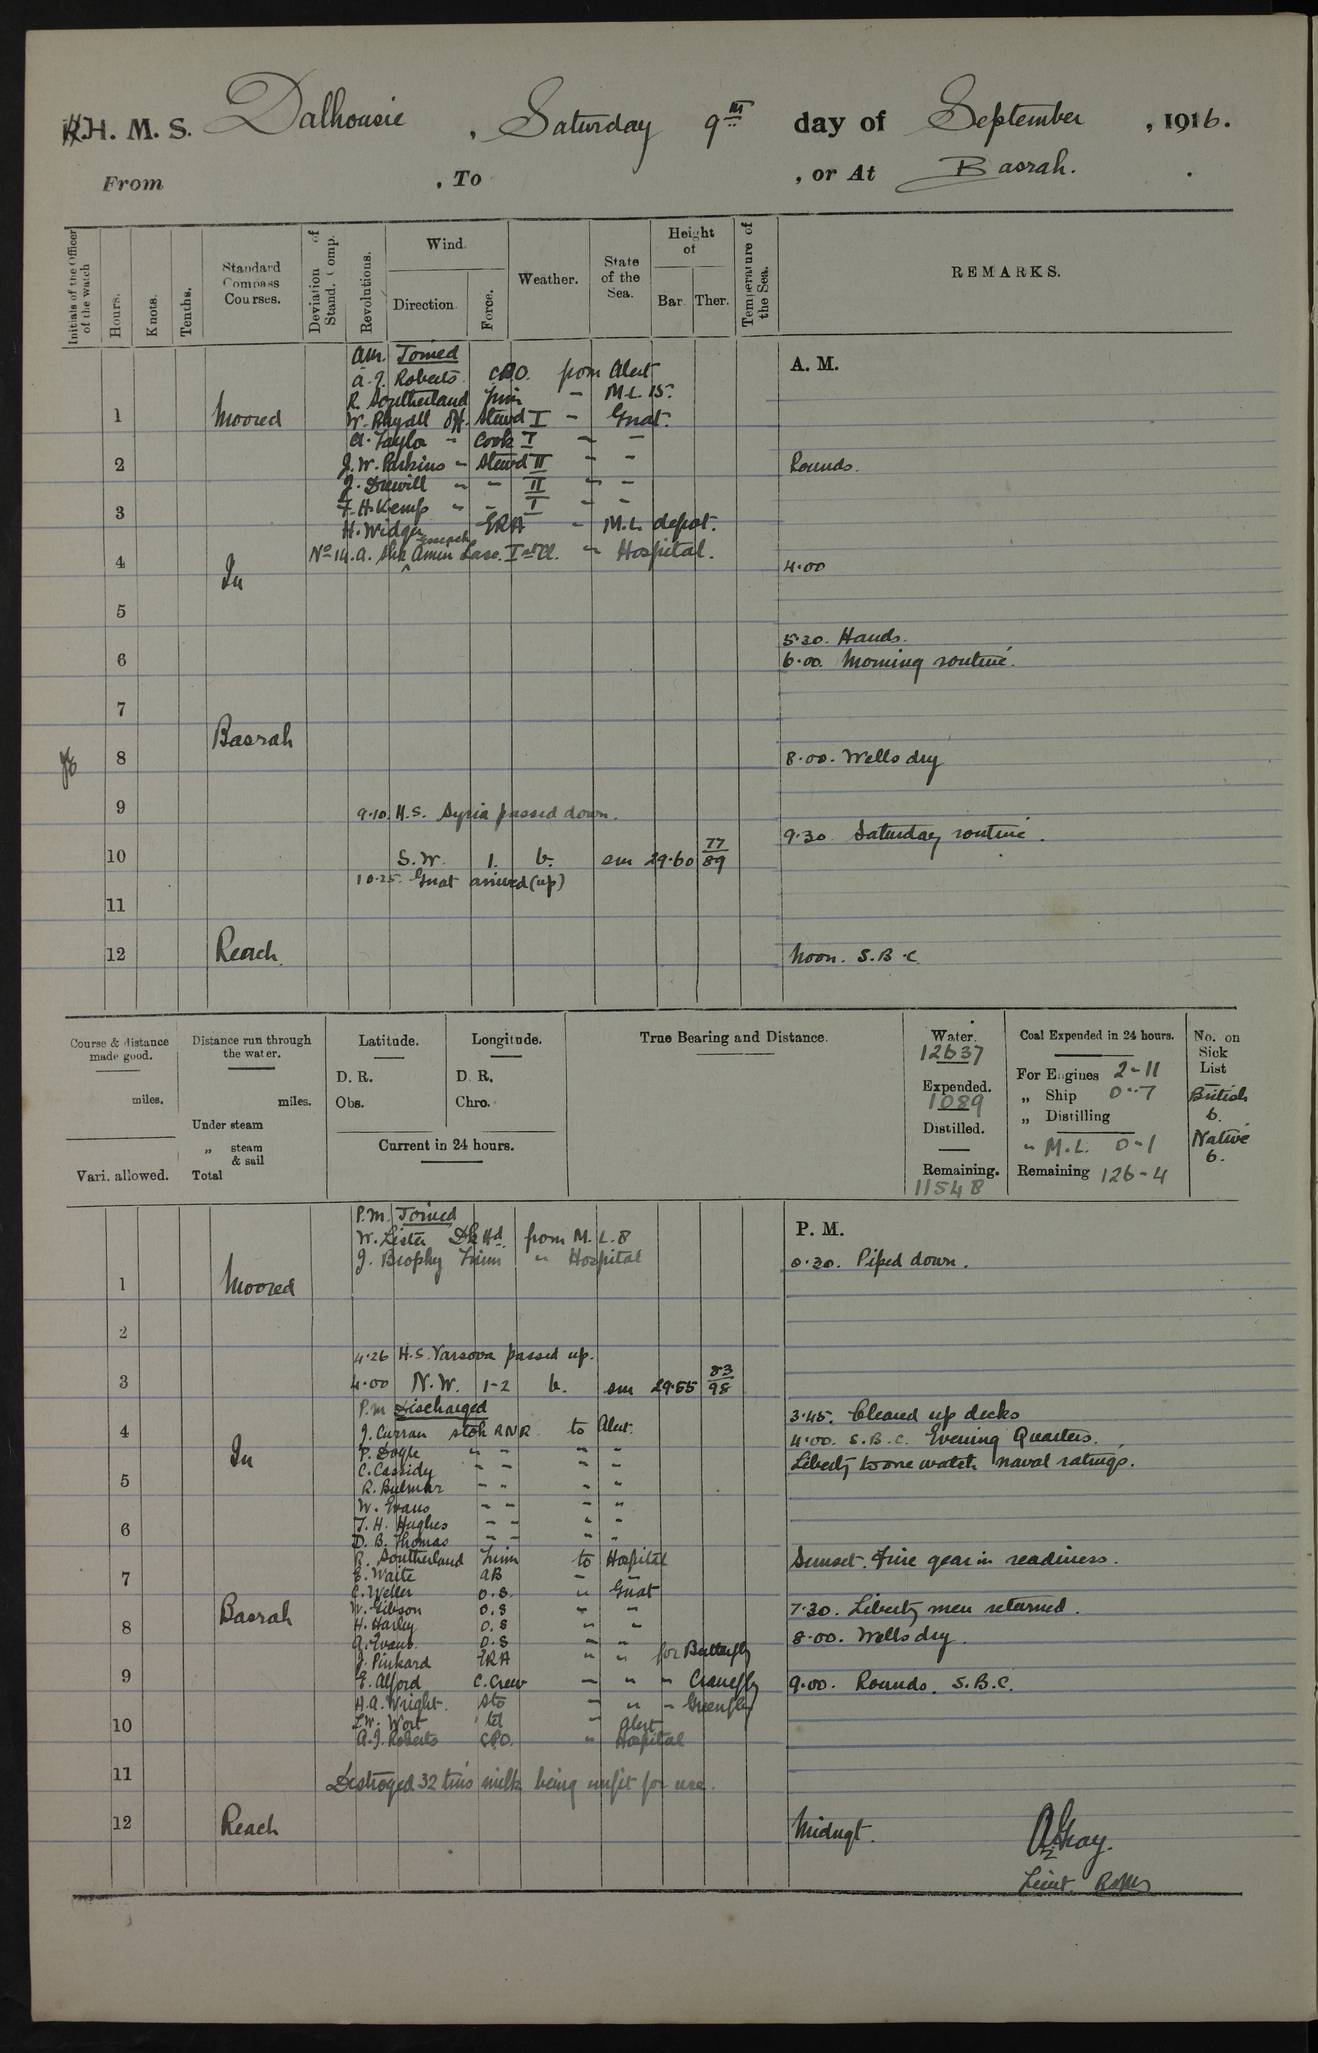 R.H. M. S. Dalhousie , Saturday 9th day of September , 1916.
From , To , or At Basrah.
Initials of the Officer of the watch
Hours.
Knots.
Tenths.
Standard Compass Courses.
Deviation of Stand. Comp.
Revolutions.
Wind.
Direction.
Force.
Weather.
State of the Sea.
Height of
Bar. Ther.
Temperature of the Sea.
REMARKS.
A. M.
am. Joined
A. J. Roberts CPO. from Alert
R. Southerland Trim - M.L. 15.
1 Moored W. Ryall Off. Stewd I - Gnat.
A. Taylor - Cook I - -
2 J. W. Parkins - Stewd II - - Rounds.
J. Drewill - - II - -
3 F. H. Kemp - - I - -
H. Widger ERA - M.L. depot.
4 No 14. A. Shk Amin Lasc. I st Cl. - Hospital.
In 4.00
5
5.30. Hands.
6 6.00. Morning routine.
7
Basrah
8 8.00. Wells dry
9 9.10. H.S. Syria passed down.
9.30 Saturday routine.
10 S.W. 1. b. sm 29.60 77/89
10.25. Gnat arrived (up)
11
12 Reach. Noon. S.B.C.
Course & distance made good.
miles.
Vari. allowed.
Distance run through the water.
miles.
Under steam
„ steam & sail
Total
Latitude.
D. R.
Obs.
Longitude.
D. R.
Chro.
Current in 24 hours.
True Bearing and Distance.
Water.
12637
Expended.
1089
Distilled.
Remaining.
11548
Coal Expended in 24 hours.
For Engines 2-11
„ Ship 0-7
„ Distilling
„ M.L. 0-1
Remaining 126-4
No. on Sick List
British
6.
Native
6.
P.M. Joined
P. M.
W. Lister Dk Hd. from M.L. 8
J. Brophy Trim " Hospital 0.30. Piped down.
1 Moored
2
4.26 H.S. Varsova passed up.
3 4.00 N.W. 1-2 b. sm 29.55 83/98
P.m Discharged
3.45. Cleared up decks
4 J. Curran Stok RNR to Alert.
4.00. S.B.C. Evening Quarters.
In P. Doyle - - - -
Liberty to one watch naval ratings.
C. Cassidy - - - -
5 R. Bulmer - - - -
W. Evans - - - -
6 T. H. Hughes - - - -
D. B. Thomas - - - -
R. Southerland Trim to Hospital Sunset. Fire gear in readiness.
7 E. Waite AB - -
C. Weller O.S. " Gnat
Basrah W. Gibson O.S - - 7.30. Liberty men returned.
8 H. Harley O.S " "
A. Evans. O.S - " 8.00. Wells dry.
J. Pinkard ERA " " for Butterfly
9 E. Alford C. Crew - " - Cranefly 9.00. Rounds. S.B.C.
H. A. Wright. Sto - " - Greenfly
10 Wort tel " Alert
A. J. Roberts CPO. " Hospital
11 Destroyed 32 tins milk being unfit for use.
12 Reach Midngt.
Lieut.